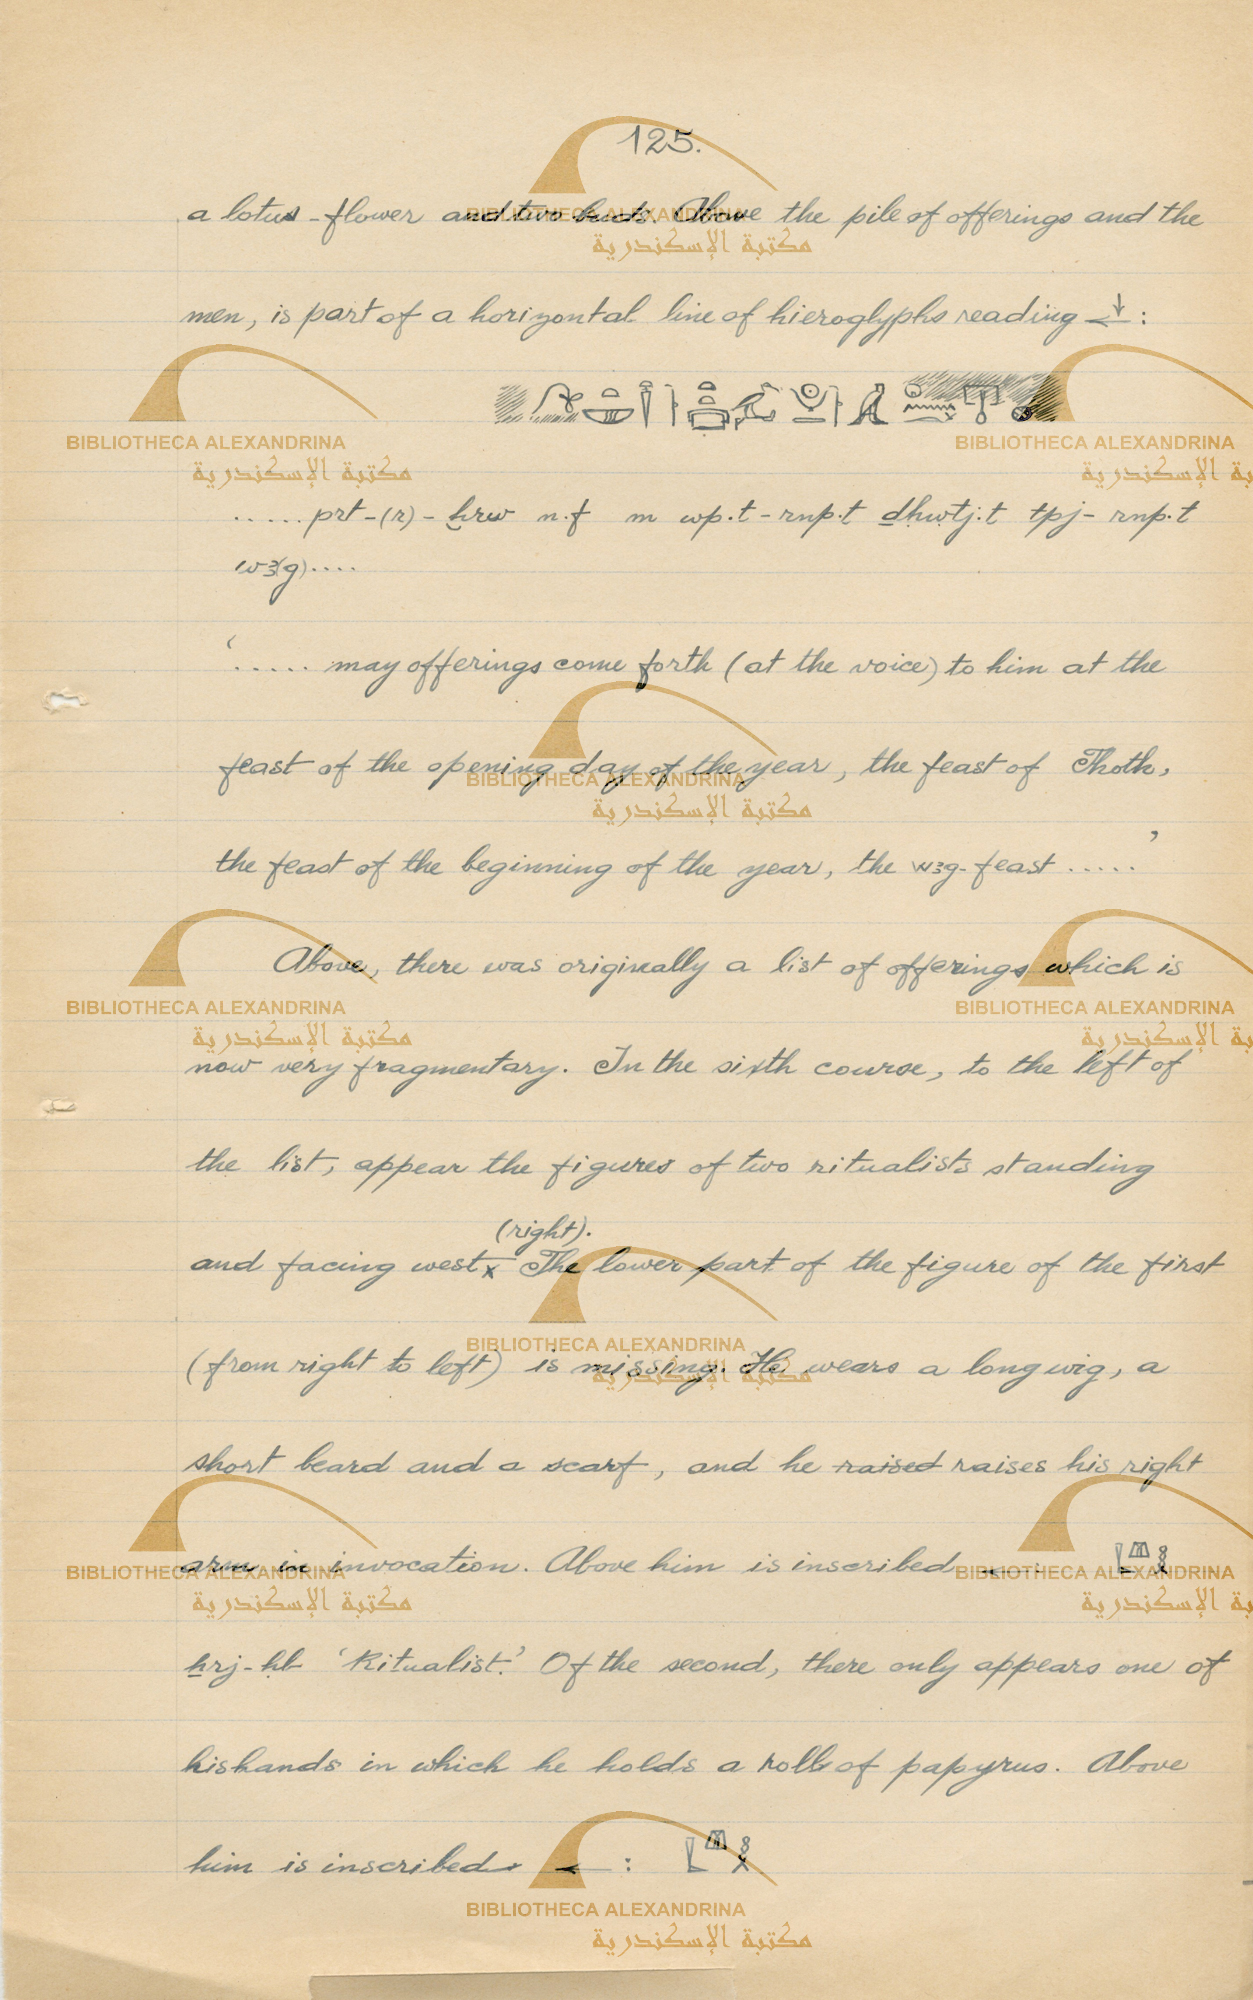 125.
a lotus-flower and two buds. Above the pile of offerings and the
men, is part of a horizontal line of hieroglyphs reading ←↓ :
.....prt-(r)-ḫrw n.f m wp.t-rnp.t ḏḥwtj.t tpj-rnp.t
w3(g)....
'..... may offerings come forth (at the voice) to him at the
feast of the opening day of the year, the feast of Thoth,
the feast of the beginning of the year, the w3g-feast .....'
Above, there was originally a list of offerings which is
now very fragmentary. In the sixth course, to the left of
the list, appear the figures of two ritualists standing
(right).
and facing west x The lower part of the figure of the first
(from right to left) is missing. He wears a long wig, a
short beard and a scarf, and he raised raises his right
arm in invocation. Above him is inscribed ← :
ẖrj-ḥb 'Ritualist.' Of the second, there only appears one of
his hands in which he holds a roll of papyrus. Above
him is inscribed ← :
BIBLIOTHECA ALEXANDRINA
مكتبة الإسكندرية